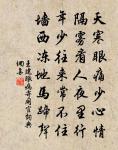 天寒眼痛少心情
隔雾看人夜里行
年少往来常不住
墙西冻地马蹄声
王建眼病寄同官词典